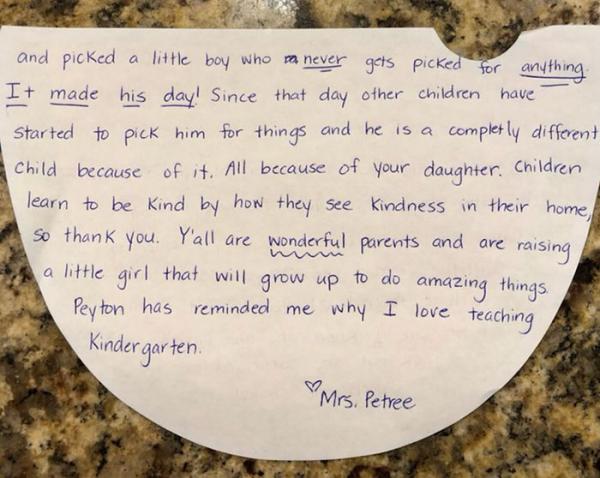 and picked a little boy who never gets picked for anything.
It made his day! Since that day other children have
started to pick him for things and he is a completly different
child because of it. All because of your daughter. Children
learn to be kind by how they see kindness in their home,
so thank you. Y'all are wonderful parents and are raising
a little girl that will grow up to do amazing things.
Peyton has reminded me why I love teaching
Kindergarten.
♡Mrs. Petree